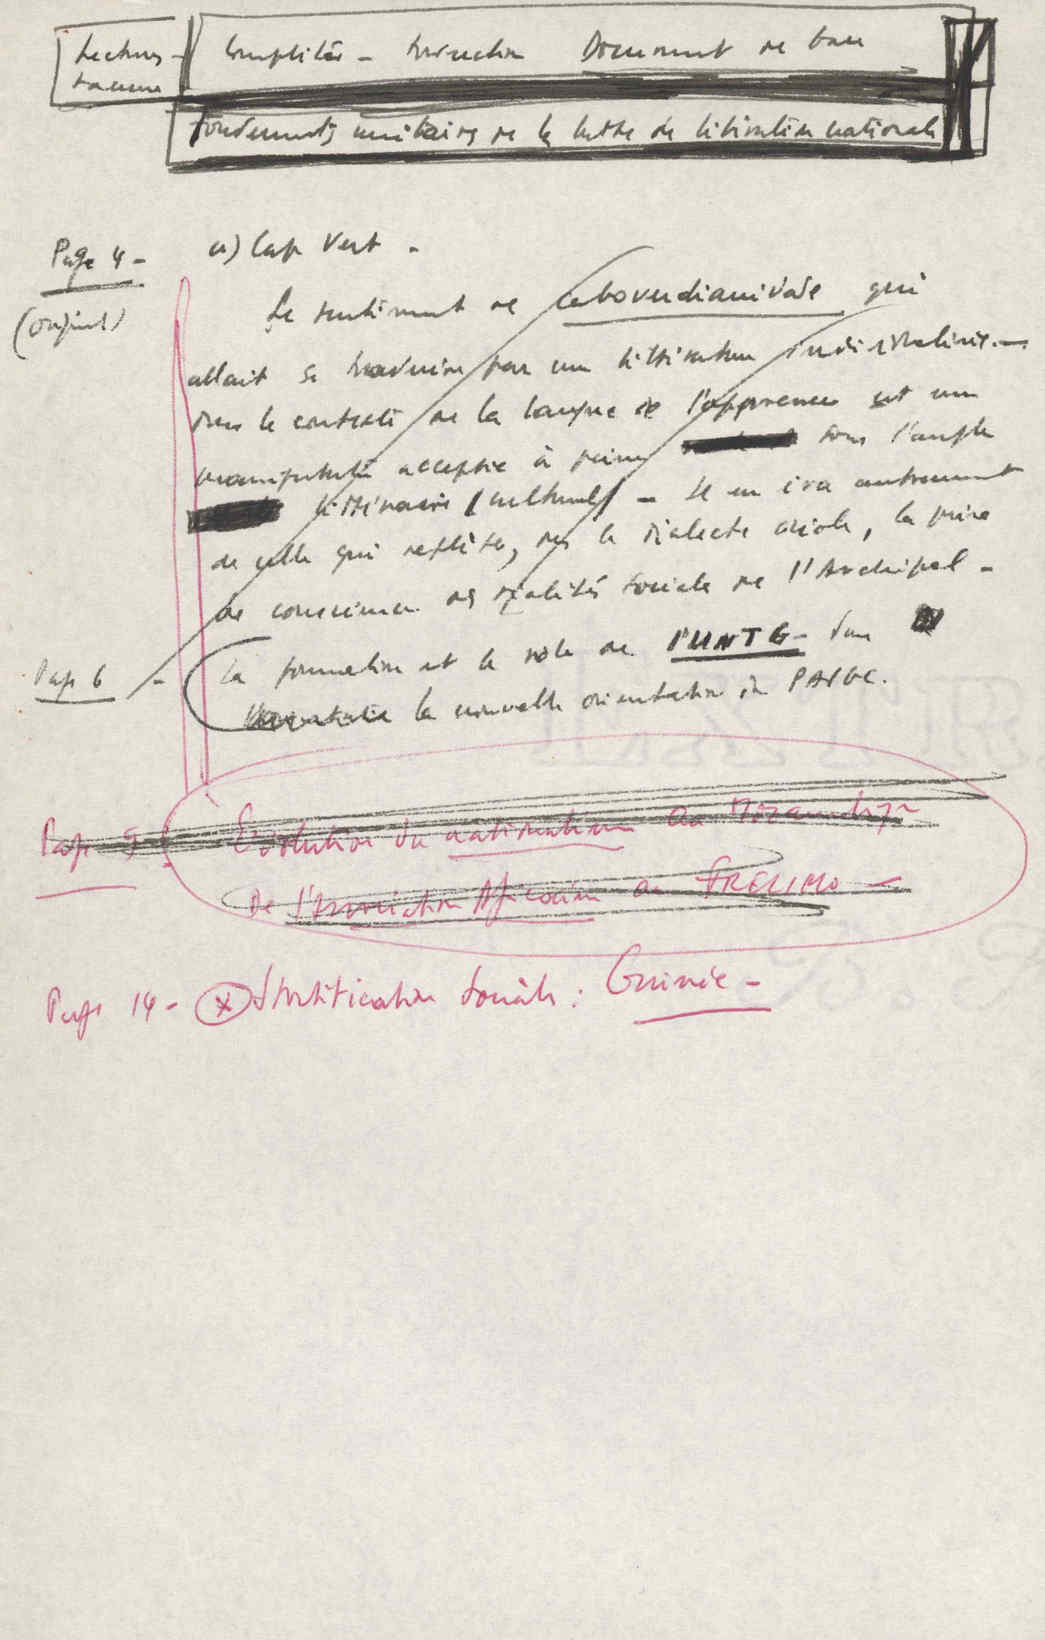 Lectures - Complétées - Direction Document de base
Fondements unitaires de la lutte de libération nationale
Page 4 - a) Cap Vert -
(original)
Le sentiment de caboverdianidade qui
allait se traduire par une littérature
dans le contexte de la langue de l'oppresseur est une
acceptée à peine sous l'angle
littéraire (culturel) - Il en ira autrement
de celle qui reflète, dans le dialecte créole, la prise
de conscience des réalités sociales de l'Archipel -
Page 6 - La formation et le rôle de l'UNTG - dans
la nouvelle orientation du PAIGC.
Page 5 Evolution du nationalisme au Mozambique
De l'Association Africaine au FRELIMO -
Page 14 - x Stratification sociale : Guinée -